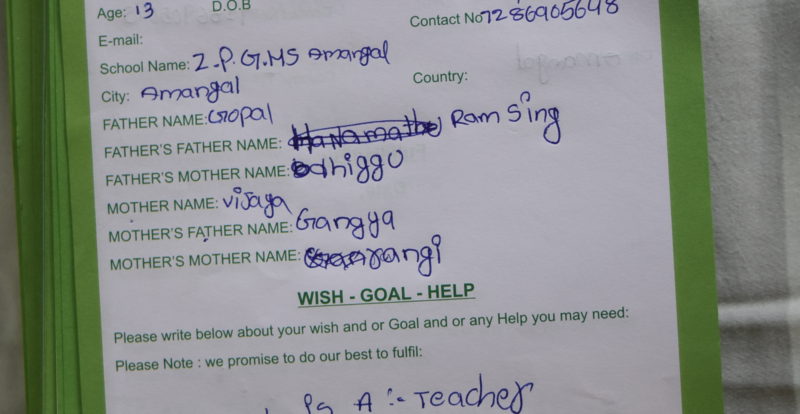 Age: 13 D.O.B
Contact No 7286905648
E-mail:
School Name: Z.P.G.HS Amangal
City: Amangal Country:
FATHER NAME: Gopal
FATHER'S FATHER NAME: Ram Sing
FATHER'S MOTHER NAME: dhiggu
MOTHER NAME: vijaya
MOTHER'S FATHER NAME: Gangya
MOTHER'S MOTHER NAME: rangi
WISH - GOAL - HELP
Please write below about your wish and or Goal and or any Help you may need:
Please Note : we promise to do our best to fulfil:
is A :- Teacher